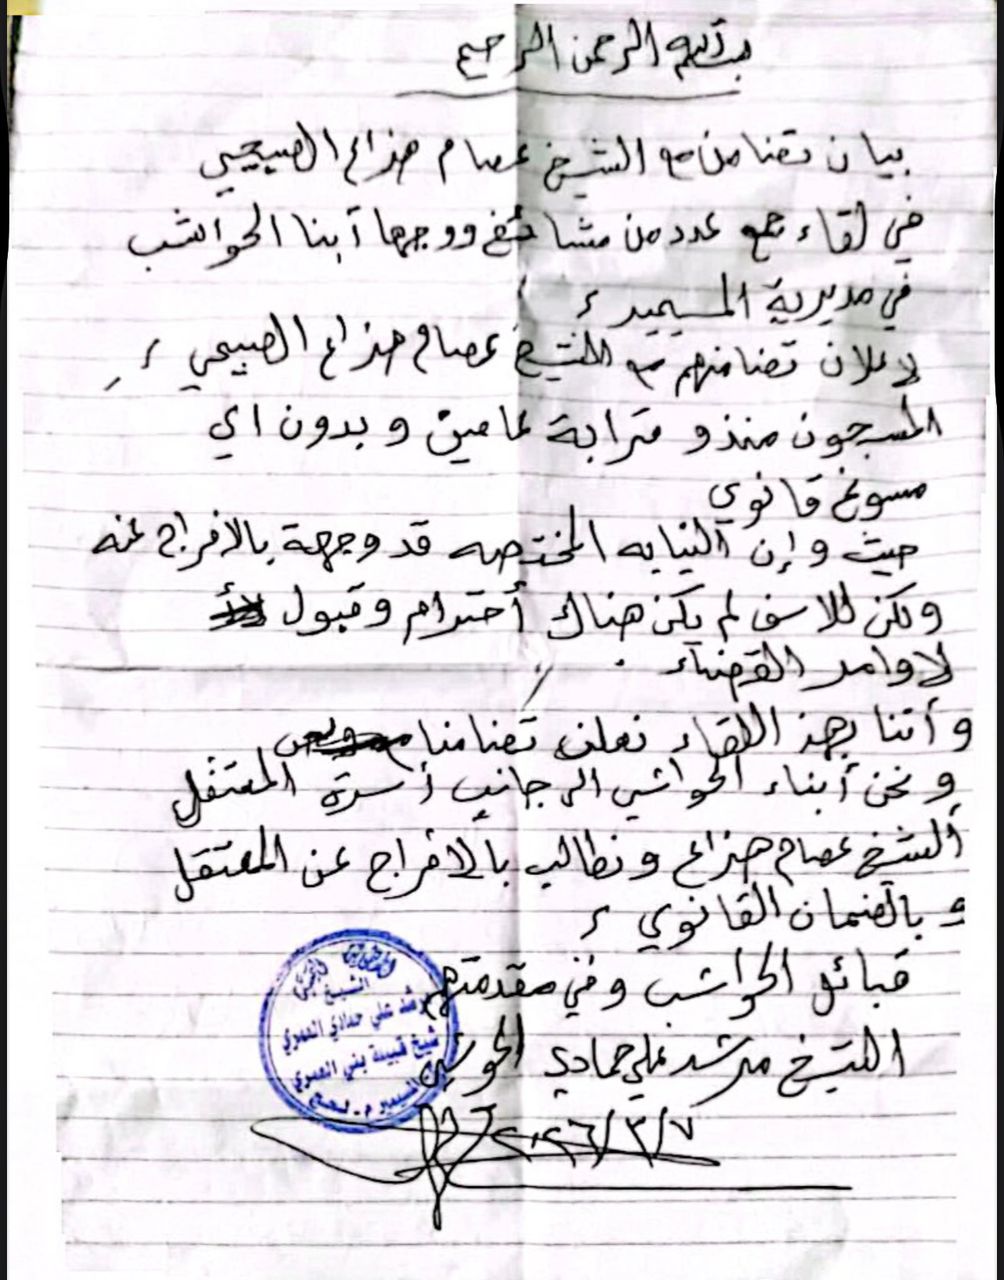 بسم الله الرحمن الرحيم
بيان تضامن مع الشيخ عصام هزاع الصبيحي
في لقاء جمع عدد من مشائخ ووجها أبنا الحواشب
في مديرية المسيمير ،
لاعلان تضامنهم مع الشيخ عصام هزاع الصبيحي ،
المسجون منذو قرابة عامين و بدون اي
مسوغ قانوني
حيث وإن النيابه المختصه قد وجهة بالافراج عنه
ولكن للاسف لم يكن هناك أحترام وقبول
لاوامر القضاء .
و أننا بهذ اللقاء نعلن تضامنا
و نحن أبناء الحواشب الى جانب أسرة المعتقل
الشيخ عصام هزاع ونطالب بالافراج عن المعتقل
و بالضمان القانوني ،
قبائل الحواشب وفي مقدمتهم
الشيخ مرشد علي حمادي الحوشبي
٢٠٢٦/٣/٧
الشيخ
مرشد علي حمادي العمري
شيخ قبيلة بني العمري
المسيمير م. لحج